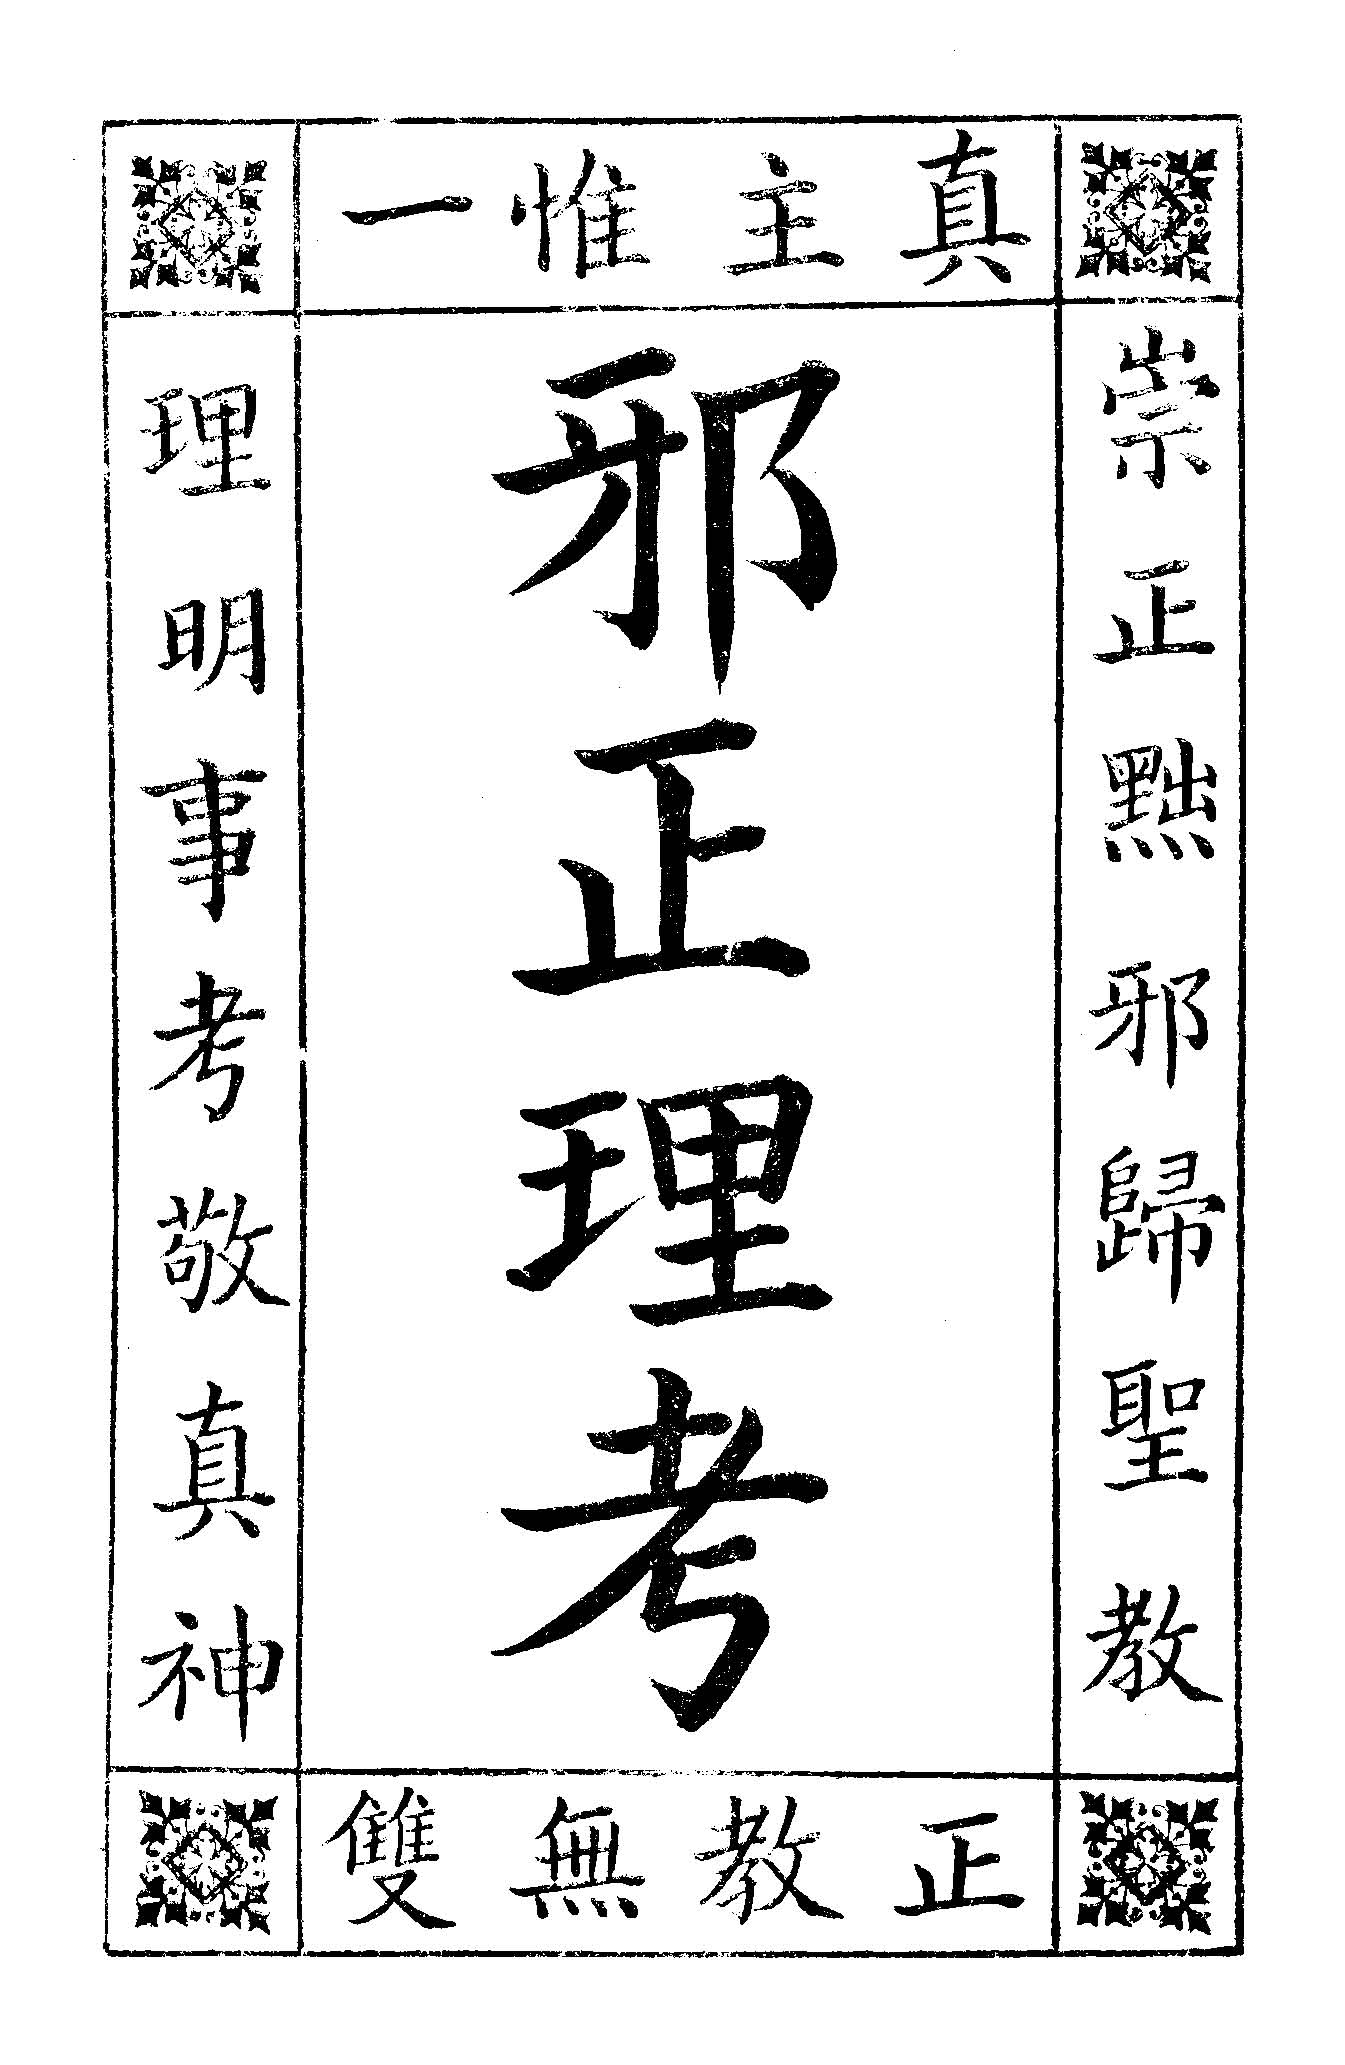 真主惟一
崇正黜邪歸聖教
邪正理考
理明事考敬真神
正教無雙